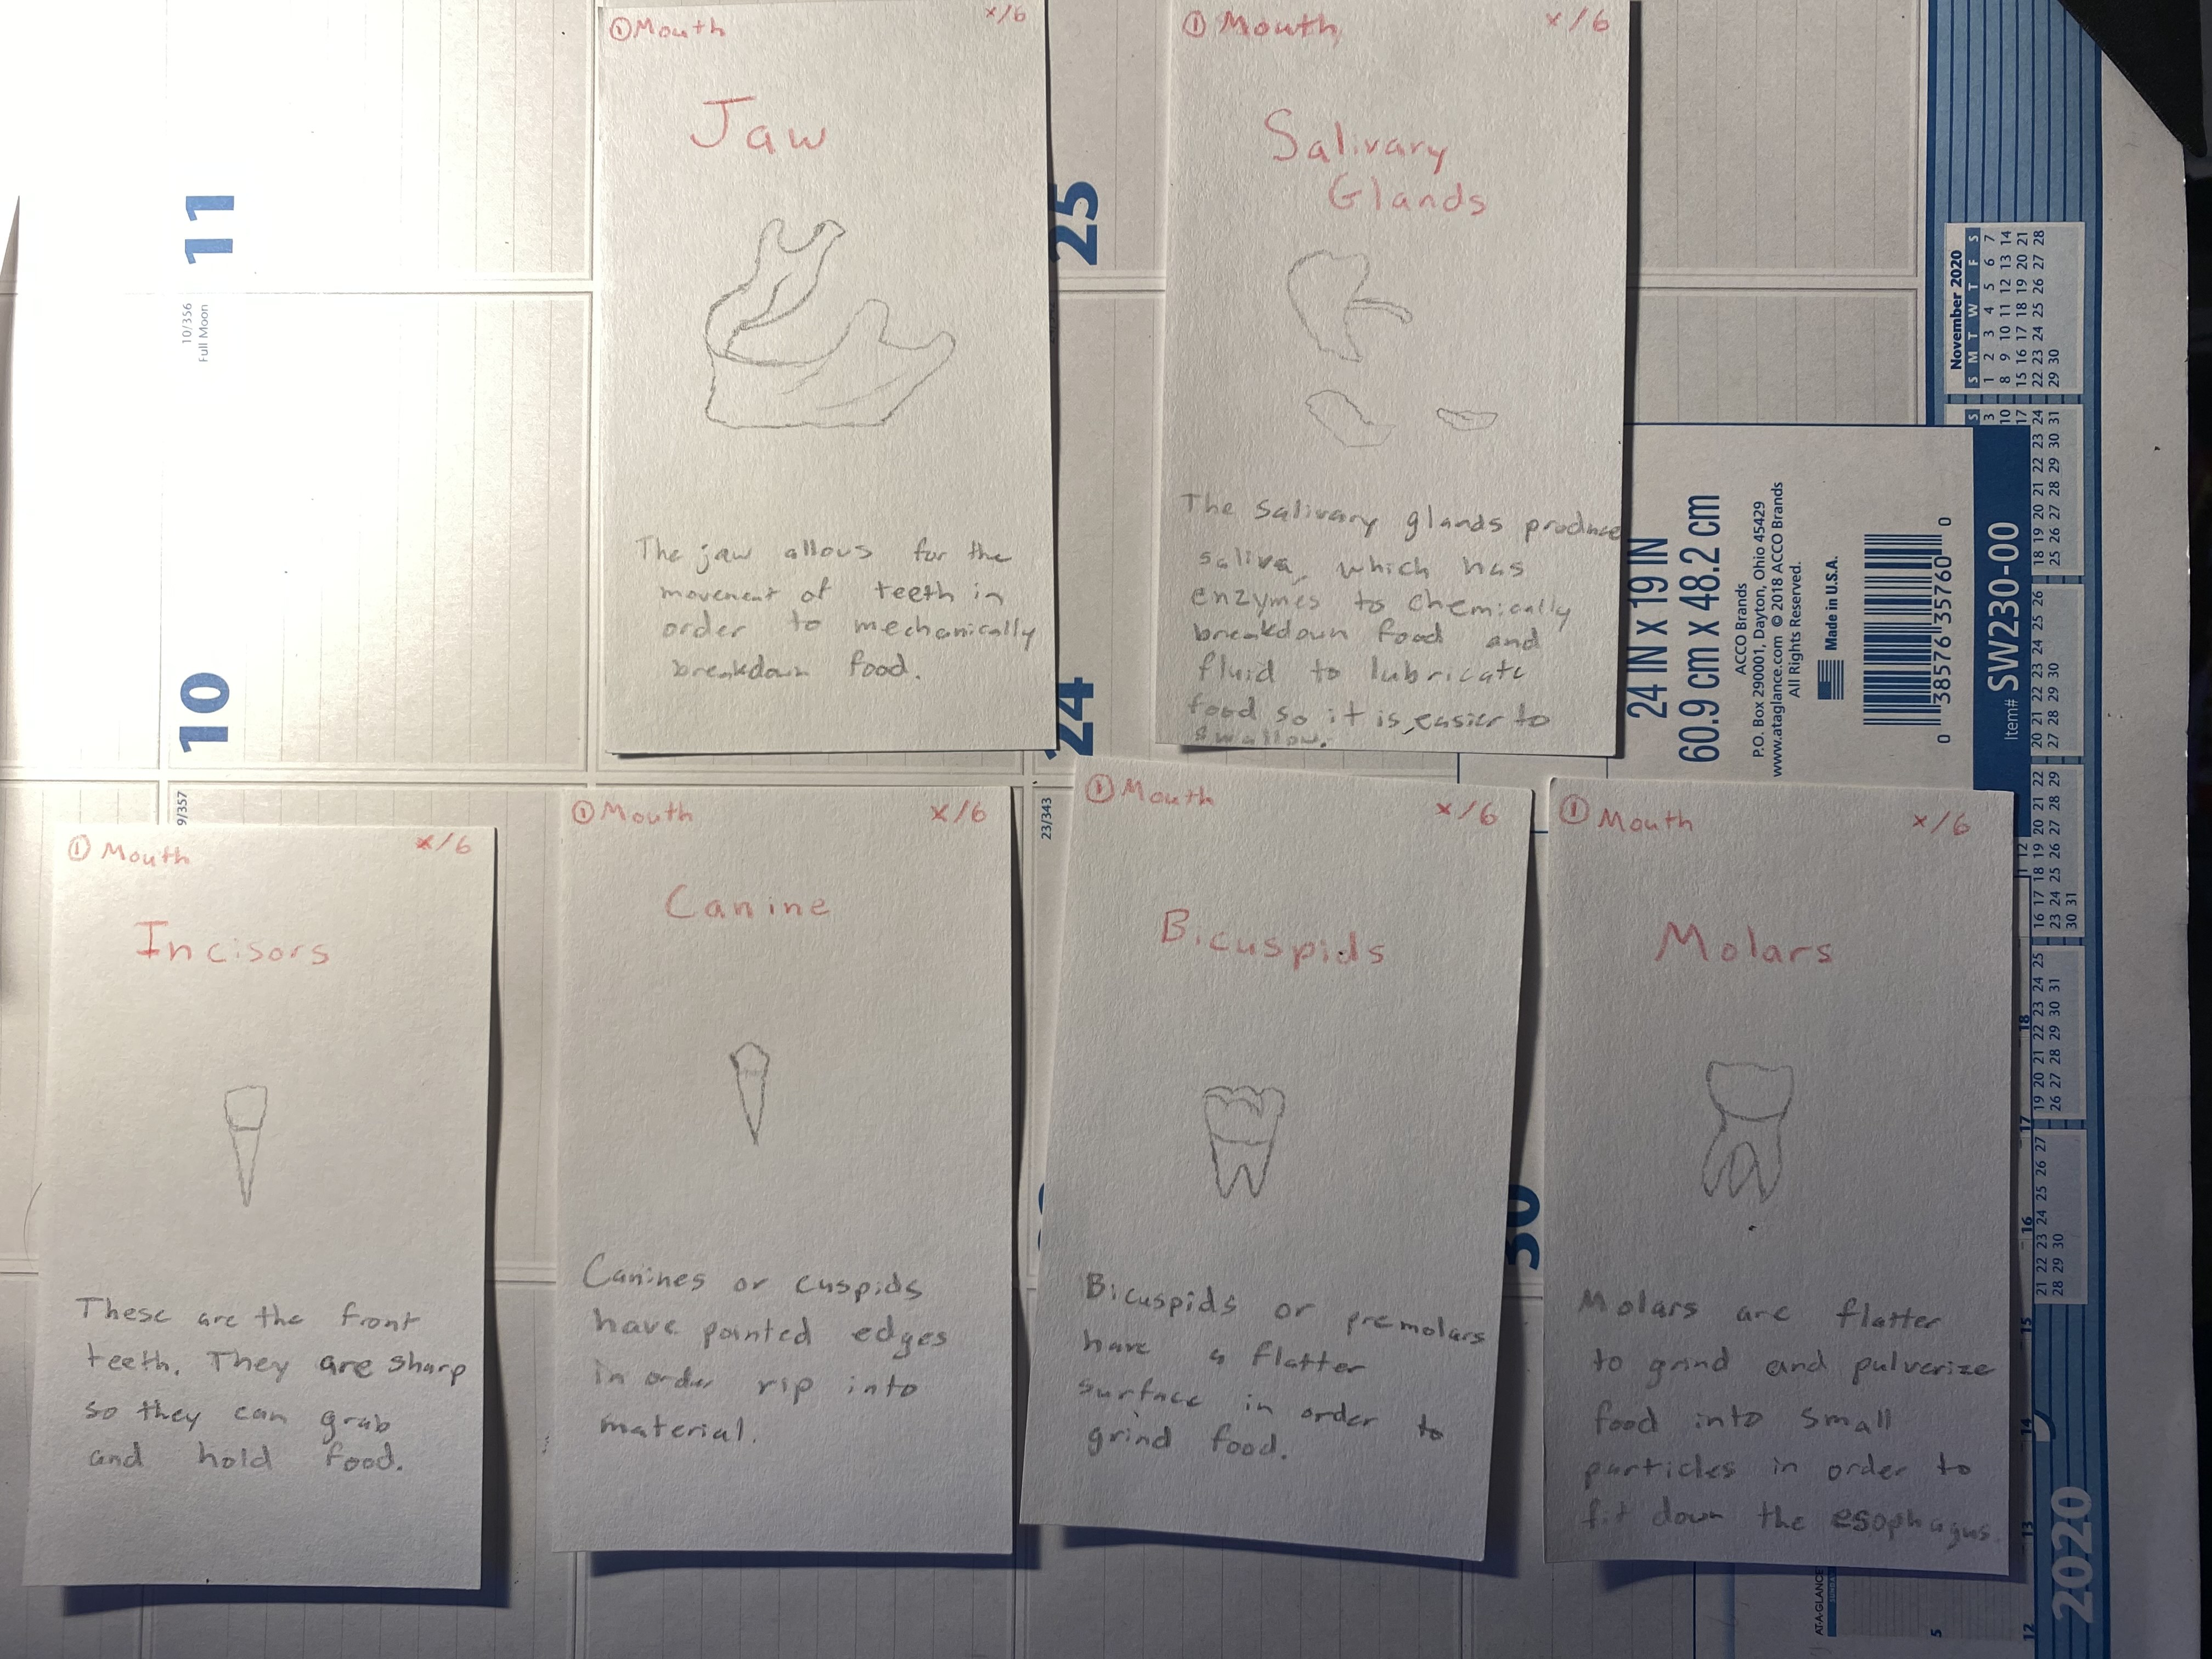 ① Mouth x/6
Jaw
The jaw allows for the
movement of teeth in
order to mechanically
breakdown food.
① Mouth x/6
Salivary
Glands
The salivary glands produce
saliva, which has
enzymes to chemically
breakdown food and
fluid to lubricate
food so it is easier to
swallow.
① Mouth x/6
Incisors
These are the front
teeth. They are sharp
so they can grab
and hold food.
① Mouth x/6
Canine
Canines or cuspids
have pointed edges
in order rip into
material.
① Mouth x/6
Bicuspids
Bicuspids or premolars
have a flatter
surface in order to
grind food.
① Mouth x/6
Molars
Molars are flatter
to grind and pulverize
food into small
particles in order to
fit down the esophagus.
11
10/356
Full Moon
10
9/357
25
24
23/343
30
24 IN X 19 IN
60.9 cm X 48.2 cm
ACCO Brands
P.O. Box 290001, Dayton, Ohio 45429
www.ataglance.com © 2018 ACCO Brands
All Rights Reserved.
Made in U.S.A.
0 38576 35760 0
Item# SW230-00
November 2020
S M T W T F S
1 2 3 4 5 6 7
8 9 10 11 12 13 14
15 16 17 18 19 20 21
22 23 24 25 26 27 28
29 30
2020
AT-A-GLANCE